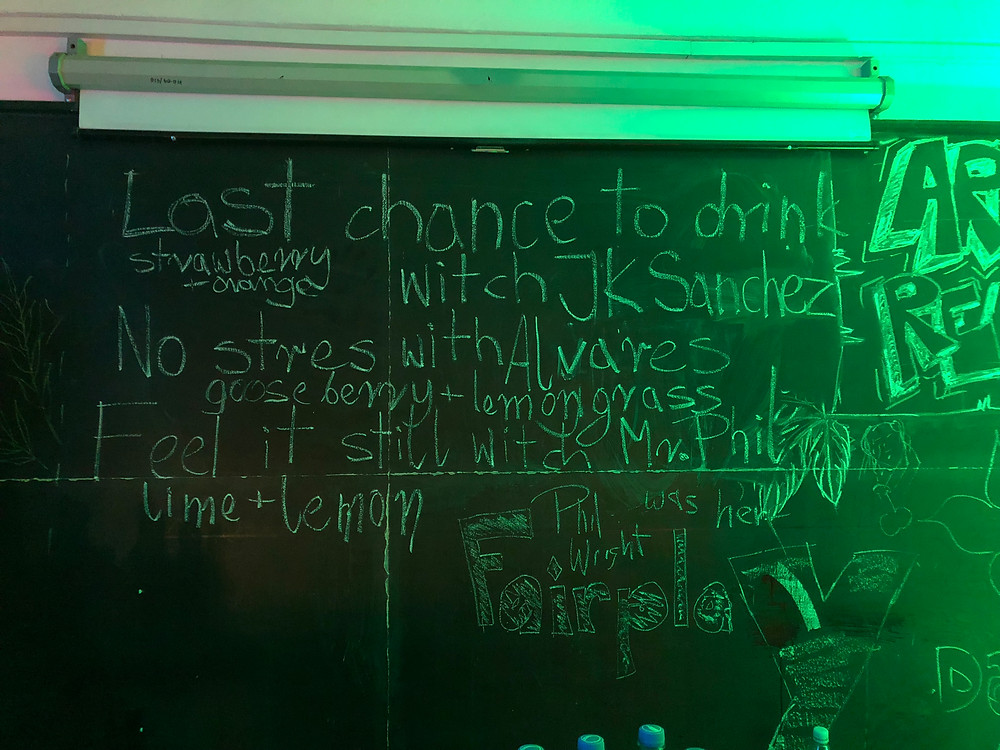 Last chance to drink
strawberry
+ orange
witch JK Sanchez
No stres with Alvares
gooseberry + lemongrass
Feel it still witch Mr. Phil
lime + lemon
Phil was here
Wright
Fairplay